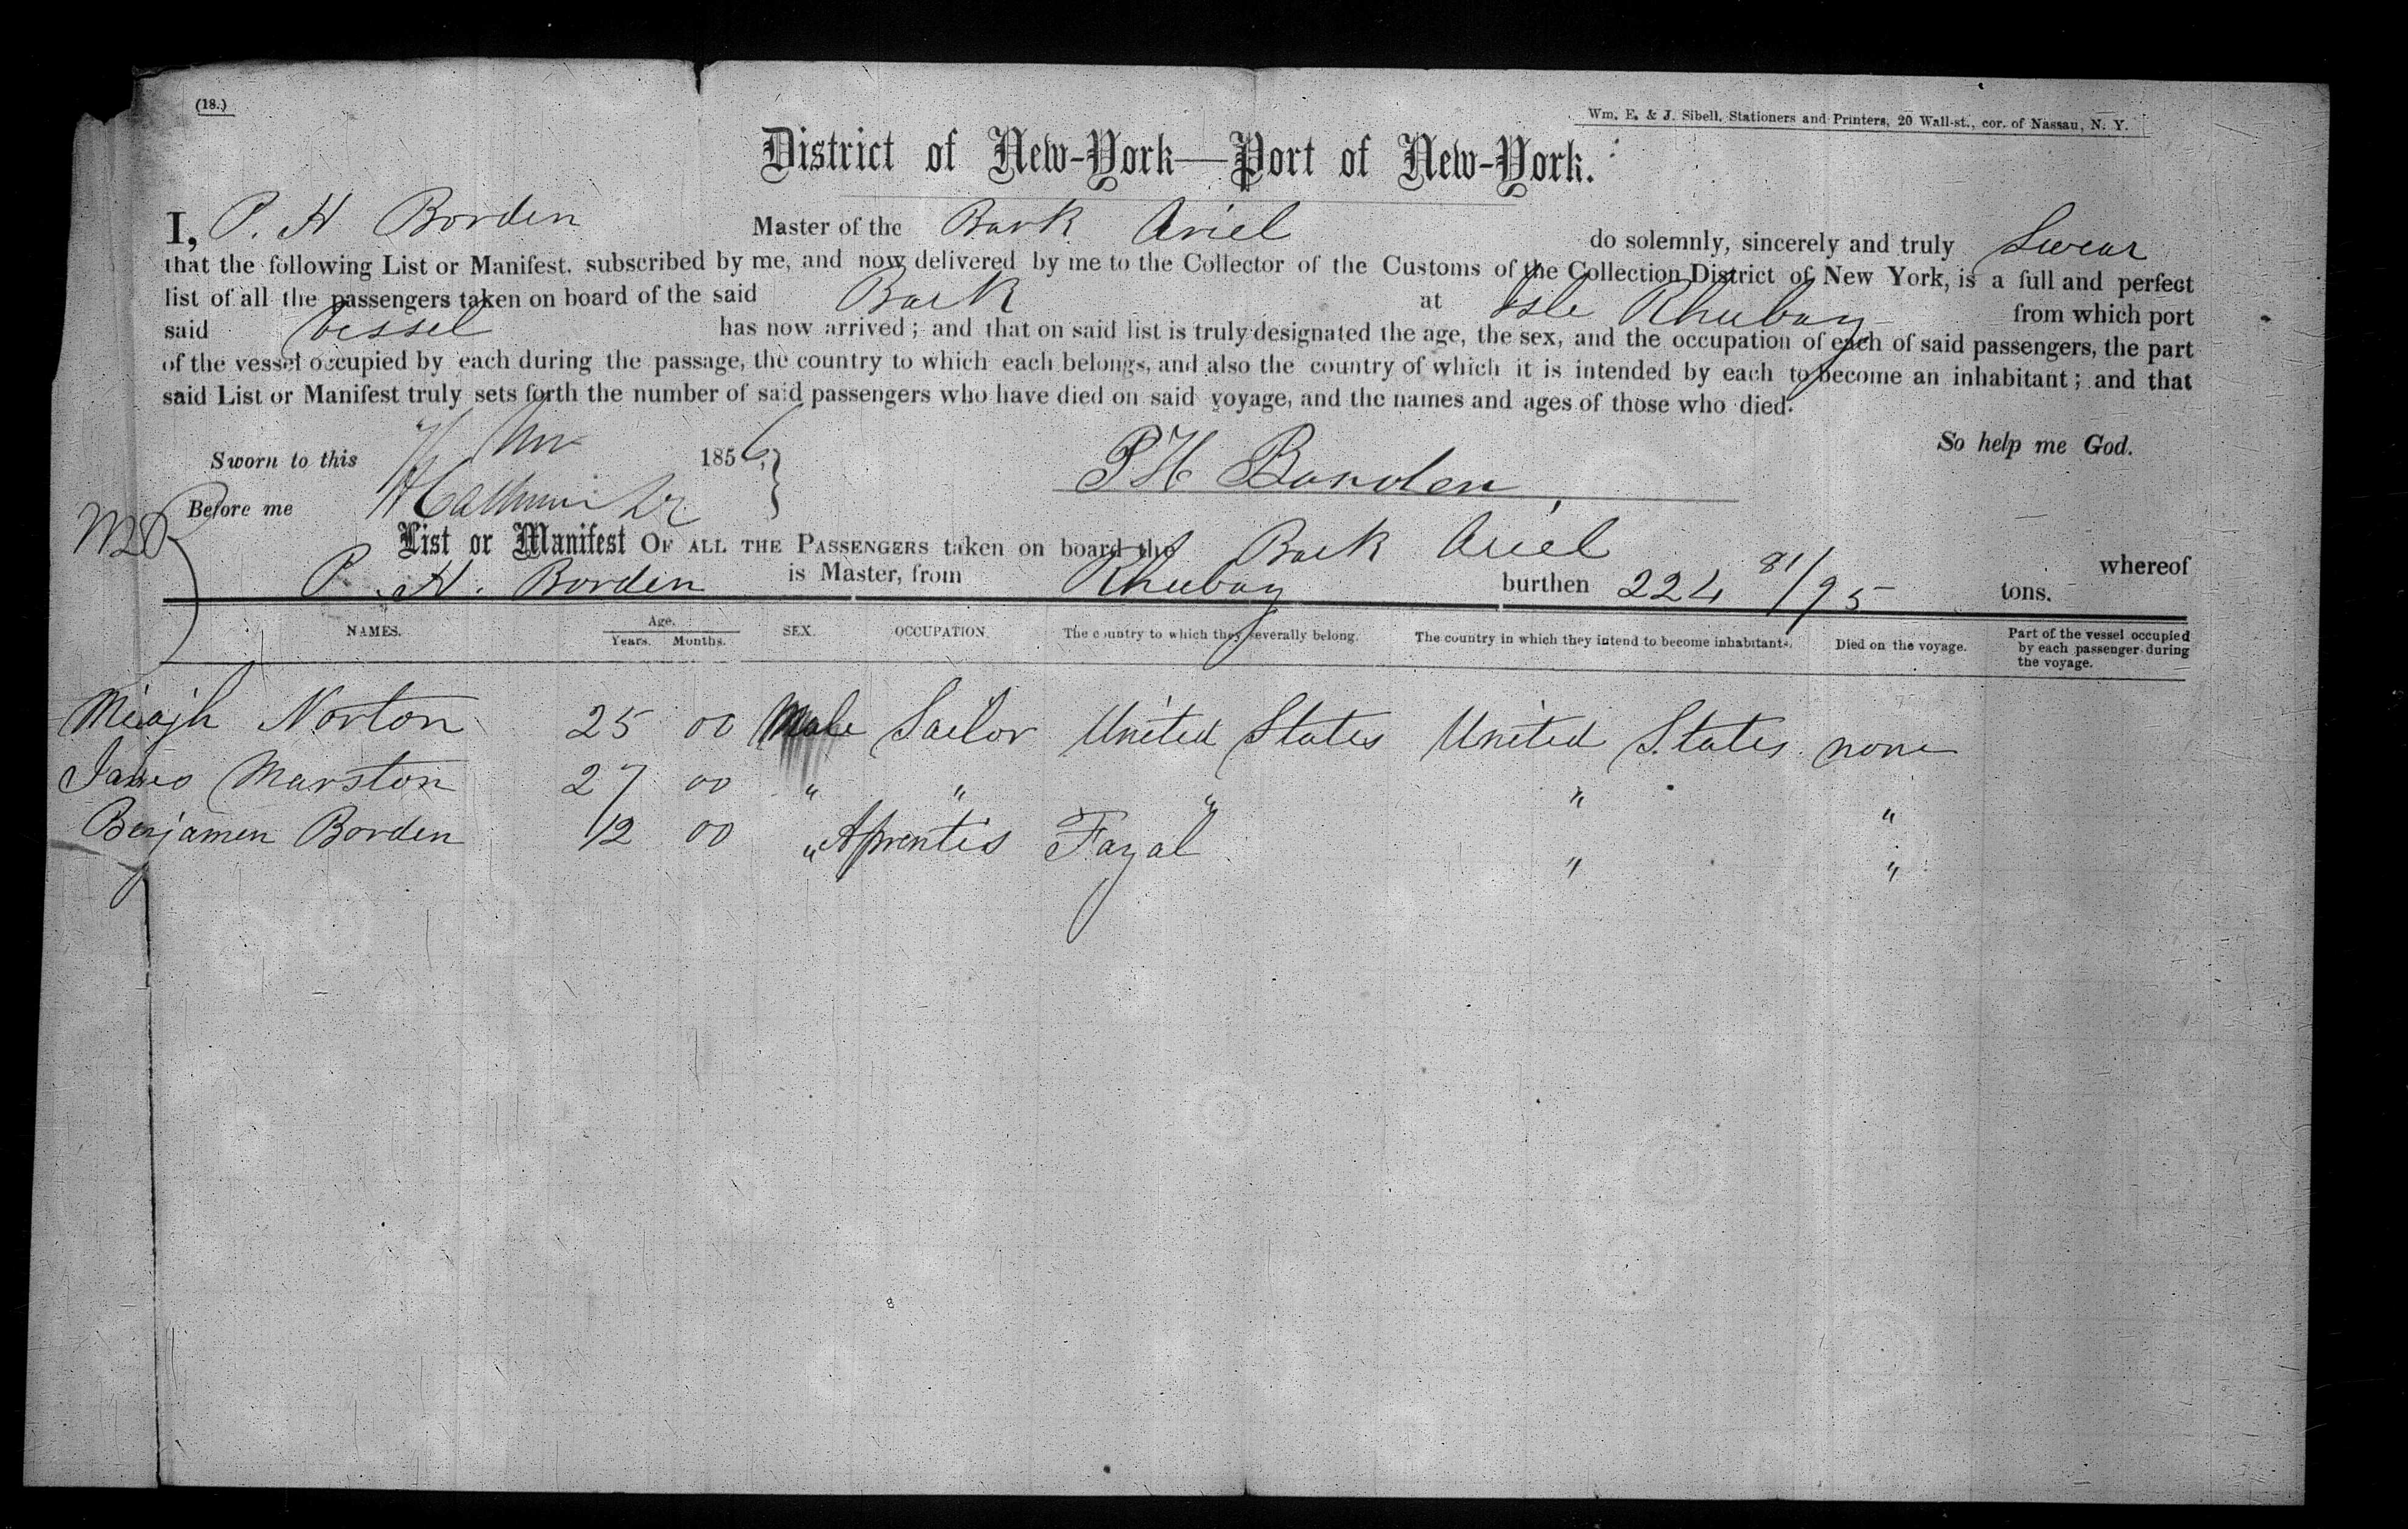 (18.)
Wm. E. & J. Sibell, Stationers and Printers, 20 Wall-st., cor. of Nassau, N. Y.
District of New-York—Port of New-York.
I, P. H Borden Master of the Bark Ariel do solemnly, sincerely and truly Swear
that the following List or Manifest, subscribed by me, and now delivered by me to the Collector of the Customs of the Collection District of New York, is a full and perfect
list of all the passengers taken on board of the said Bark at Isle Rhubay from which port
said Vessel has now arrived; and that on said list is truly designated the age, the sex, and the occupation of each of said passengers, the part
of the vessel occupied by each during the passage, the country to which each belongs, and also the country of which it is intended by each to become an inhabitant; and that
said List or Manifest truly sets forth the number of said passengers who have died on said voyage, and the names and ages of those who died.
So help me God.
Sworn to this Nov 1856,
P H Borden
Before me
List or Manifest OF ALL THE PASSENGERS taken on board the Bark Ariel whereof
P. H. Borden is Master, from Rhubay burthen 224 81/95 tons.
NAMES. Age. Years. Months. SEX. OCCUPATION. The country to which they severally belong. The country in which they intend to become inhabitants. Died on the voyage. Part of the vessel occupied by each passenger during the voyage.
Norton 25 00 Male Sailor United States United States none
James Marston 27 00 " " " " "
Benjamen Borden 12 00 " Aprentis Fayal " "
8